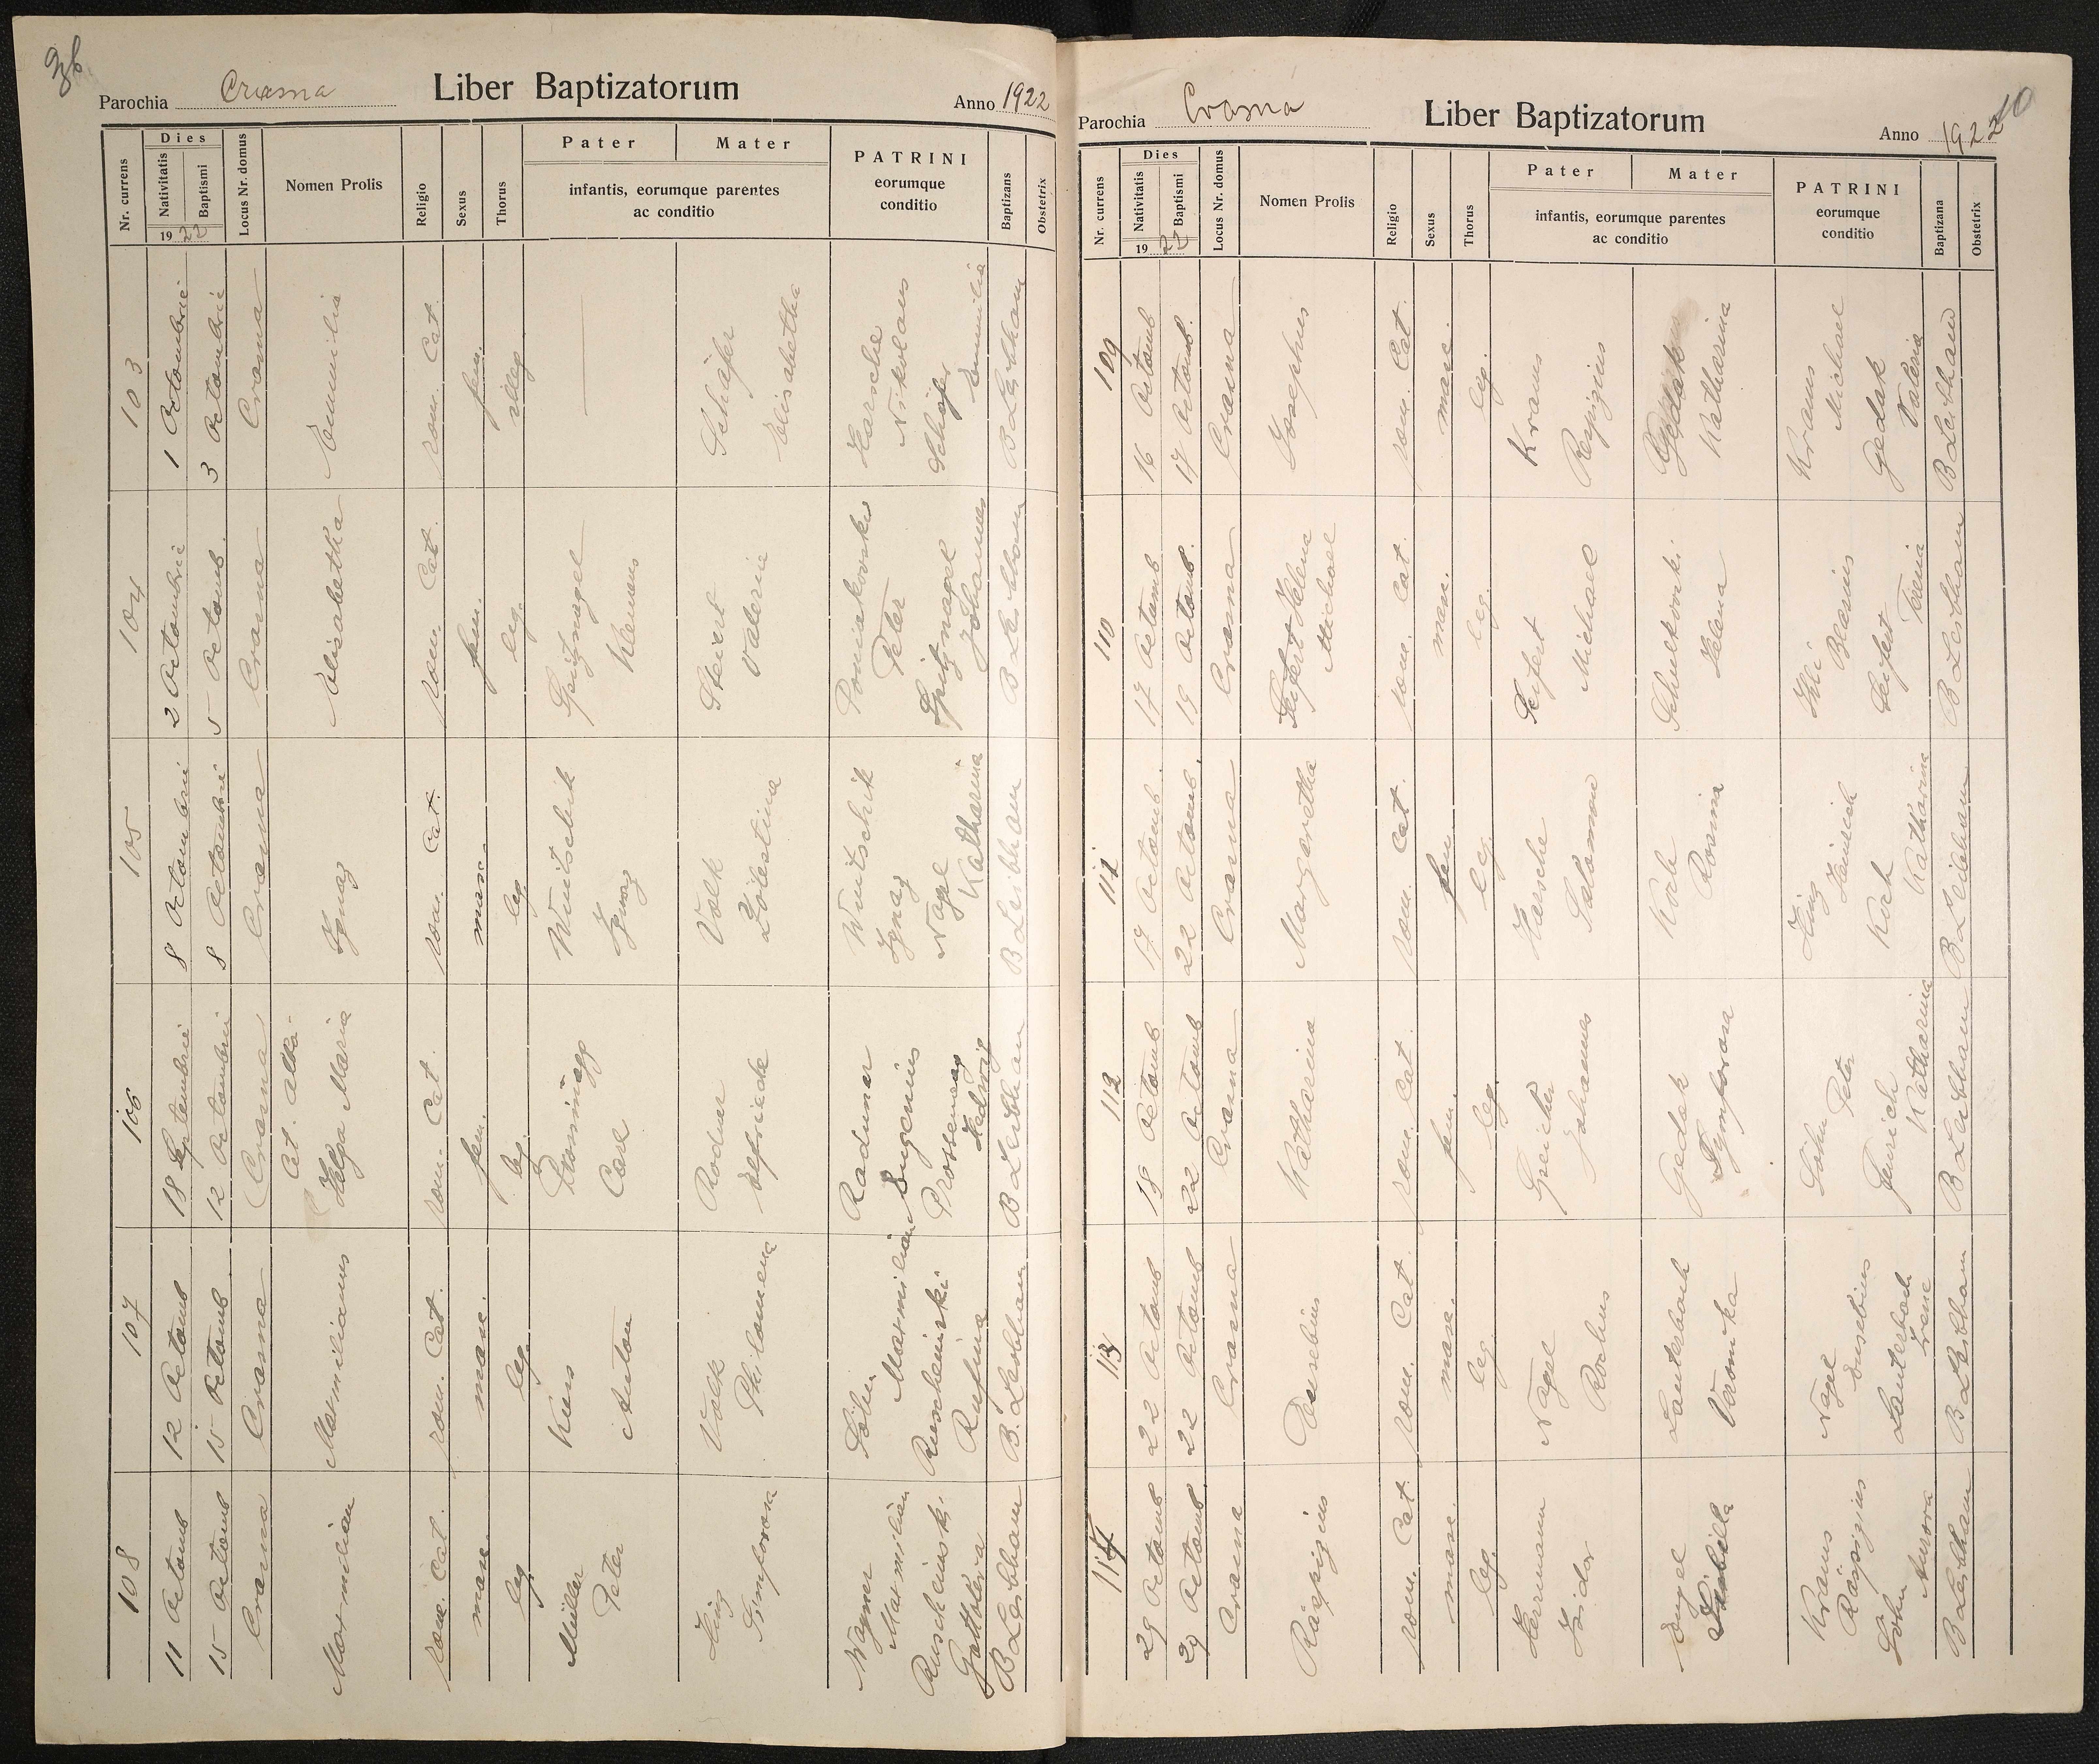 36
Parochia Crasna Liber Baptizatorum Anno 1922
Nr. currens
Dies
Nativitatis
Baptismi
19 22
Locus Nr. domus
Nomen Prolis
Religio
Sexus
Thorus
Pater
Mater
infantis, eorumque parentes
ac conditio
PATRINI
eorumque
conditio
Baptizans
Obstetrix
103
1 Octombrie
3 Octombrie
Crasna
Emmilia
rom. Cat.
fem.
illeg
Schäfer
Elisabetha
Harsche
Nikolaus
Schäfer
Emmilia
B Leibham
104
2 Octombrie
5 Octomb.
Crasna
Elisabetha
rom. Cat.
fem.
leg.
Spitznagel
Klemens
Steiert
Valeria
Poniatkovski
Peter
Spitznagel
Johannes
B Leibham
105
8 Octombrie
8 Octombrie
Crasna
Ignaz
rom. Cat.
masc.
leg
Wuitschik
Ignaz
Volk
Zölestina
Wuitschik
Ignaz
Nagel
Katharina
B Leibham
106
18 Septembrie
12 Octombrie
Crasna
Cet. alba
Helga Maria
rom. Cat.
fem.
leg.
Carl
Radner
Elfriede
Radner
Eugenius
Hedwig
B Leibham
107
12 Octomb
15 Octomb
Crasna
Maxmilianus
rom. Cat.
masc.
leg.
Kuss
Anton
Volk
Philomena
Söhn
Maxmilian
Ruscheinski
Rufina
B. Leibham
108
11 Octomb
15 Octomb
Crasna
Maxmilian
rom. Cat.
masc.
leg.
Müller
Peter
Hinz
Simforosa
Wagner
Maxmilian
Ruscheinski
B Leibham
10
Parochia Crasna Liber Baptizatorum Anno 1922
Nr. currens
Dies
Nativitatis
Baptismi
19 22
Locus Nr. domus
Nomen Prolis
Religio
Sexus
Thorus
Pater
Mater
infantis, eorumque parentes
ac conditio
PATRINI
eorumque
conditio
Baptizana
Obstetrix
109
16 Octomb
17 Octomb.
Crasna
Josephus
rom. Cat.
masc.
leg.
Kraus
Respizius
Gedak
Katharina
Kraus
Michael
Gedak
Valeria
B Leibham
110
17 Octomb
19 Octomb.
Crasna
Seifert Helena
Michael
rom. Cat.
masc.
leg.
Seifert
Michael
Schulkovski
Helena
Ihli
Blasius
Seifert
B Leibham
111
17 Octomb.
22 Octomb.
Crasna
Margaretha
rom. Cat.
fem.
leg.
Harsche
Salamon
Koch
Rosina
Hinz
Heinrich
Koch
Katharina
B Leibham
112
18 Octomb
22 Octomb
Crasna
Katharina
rom. Cat.
fem.
leg.
Johannes
Gedak
Symforosa
Söhn
Peter
Katharina
B Leibham
113
22 Octomb
22 Octomb
Crasna
Eusebius
rom. Cat.
masc.
leg
Nagel
Rochus
Lauterbach
Veronika
Nagel
Eusebius
Lauterbach
Irene
B Leibham
114
29 Octomb
29 Octomb
Crasna
Räspizius
rom. Cat.
masc.
leg.
Herrmann
Isidor
Engel
Sibilla
Kraus
Räspizius
Söhn
Aurora
B Leibham